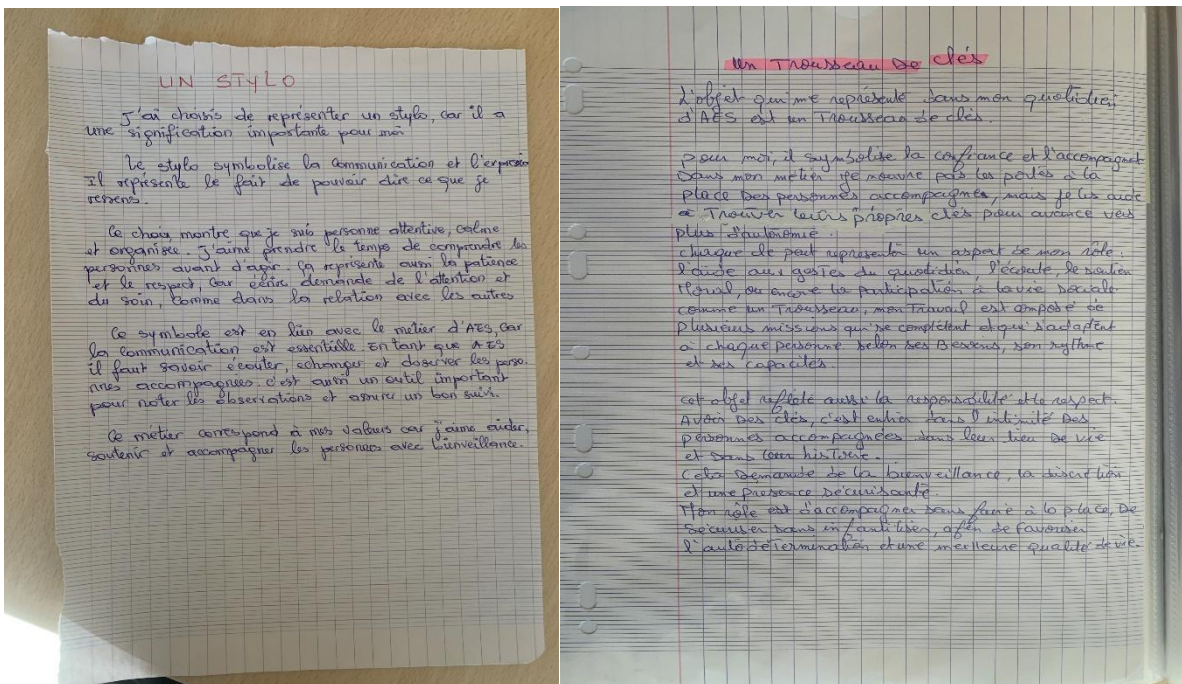 UN STYLO
J'ai choisis de représenter un stylo, car il a
une signification importante pour moi
Le stylo symbolise la communication et l'expression
Il représente le fait de pouvoir dire ce que je
ressens.
Ce choix montre que je suis personne attentive, calme
et organisée. J'aime prendre le temps de comprendre les
personnes avant d'agir. ça représente aussi la patience
et le respect, car écrire demande de l'attention et
du soin, comme dans la relation avec les autres
Ce symbole est en lien avec le métier d'AES, car
la communication est essentielle. En tant que AES
il faut savoir écouter, echanger et observer les perso-
nnes accompagnées. c'est aussi un outil important
pour noter les observations et assurer un bon suivi.
Ce métier correspond à mes valeurs car j'aime aider,
soutenir et accompagner les personnes avec bienveillance.
Un Trousseau De clés
L'objet qui me représente dans mon quotidien
d'AES est un Trousseau de clés.
pour moi, il symbolise la confiance et l'accompagnet
Dans mon métier je n'ouvre pas les portes à la
place Des personnes accompagnés, mais je les aide
à Trouver leurs propres clés pour avance vers
plus d'autonomie.
chaque cle peut représenter un aspect de mon rôle:
l'aide aux gestes du quotidien, l'écoute, le soutien
Moral, ou encore la participation à la vie sociale
comme un Trousseau, mon Travail est composé de
plusieurs missions qui se complètent et qui s'adaptent
à chaque personne selon ses Besoins, son rythme
et ses capacités.
cet objet reflète aussi la responsabilité et le respect.
Avoir Des clés, c'est entrer dans l'intimité Des
personnes accompagnées dans leur lieu De vie
et Dans leur histoire.
Cela Demande de la bienveillance, la discretion
et une présence sécurisante.
Mon rôle est d'accompagner sans faire à la place, De
sécuriser sans infantiliser, afin de favoriser
l'autodétermination et une meilleure qualité de vie.